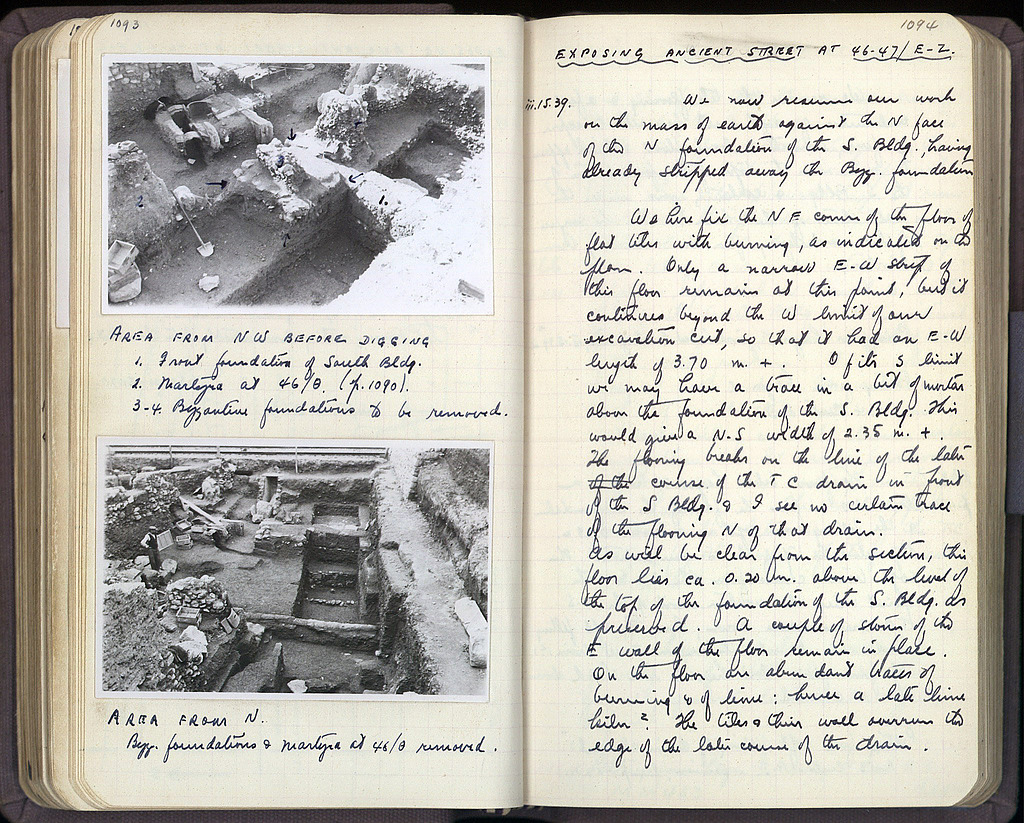 1093
AREA FROM NW BEFORE DIGGING
1. Front foundation of South Bldg.
2. Martyra at 46/Θ. (p. 1090).
3-4. Byzantine foundations to be removed.
AREA FROM N.
Byz. foundations & martyra at 46/Θ removed.
1094
EXPOSING ANCIENT STREET AT 46-47/E-Z.
iii.15.39. We now resume our work
on the mass of earth against the N face
of the N foundation of the S. Bldg., having
already stripped away the Byz. foundation
We here fix the NE corner of the floor of
flat tiles with burning, as indicated on the
plan. Only a narrow E-W strip of
this floor remains at this point, but it
continues beyond the W limit of our
excavation cut, so that it had an E-W
length of 3.70 m. +. Of its S limit
we may have a trace in a bit of mortar
above the foundation of the S. Bldg. This
would give a N-S width of 2.35 m. +.
The flooring breaks on the line of the later
of the course of the TC drain in front
of the S Bldg. & I see no certain trace
of the flooring N of that drain.
As will be clear from the section, this
floor lies ca. 0.20 m. above the level of
the top of the foundation of the S. Bldg. as
preserved. A couple of stones of the
E wall of the floor remain in place.
On the floor are abundant traces of
burning & of lime: hence a late lime
kiln? The tiles & their wall overrun the
edge of the later course of the drain.